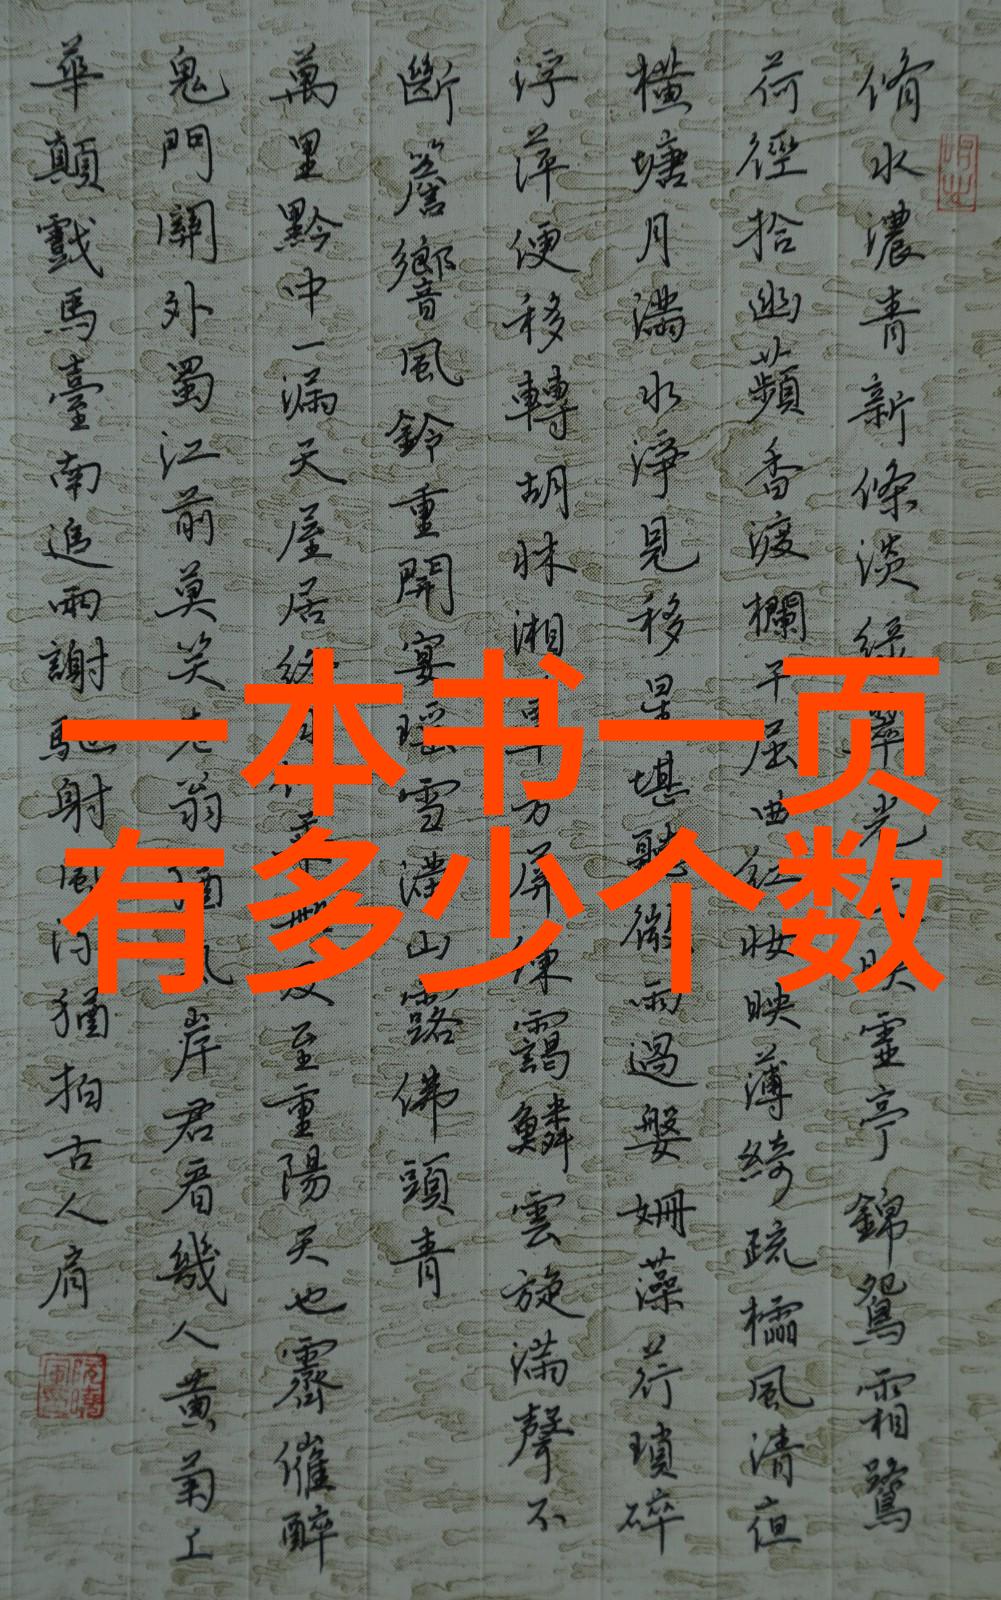 脩水濃青新條淡綠翠光映虛亭錦鴛霜鷺
荷徑拾幽蘋香渡欄干屈曲紅妝映薄綺疏櫺風清但
橫塘月滿水淨見移星堪聽微雨過媻姍藻荇瑣碎
浮萍便移轉胡牀湘簟方屏練靄鱗雲旋滿聲不
斷簷響風鈴重開宴瑤雪滿山露佛頭青
萬里黔中一漏天屋居終日似乘及至重陽天也霽催醉
鬼門關外蜀江前莫笑老翁岸君看幾人黃菊上
華顛戲馬臺南追兩謝馳射風流猶拍古人肩
一本书一页
有多少个数